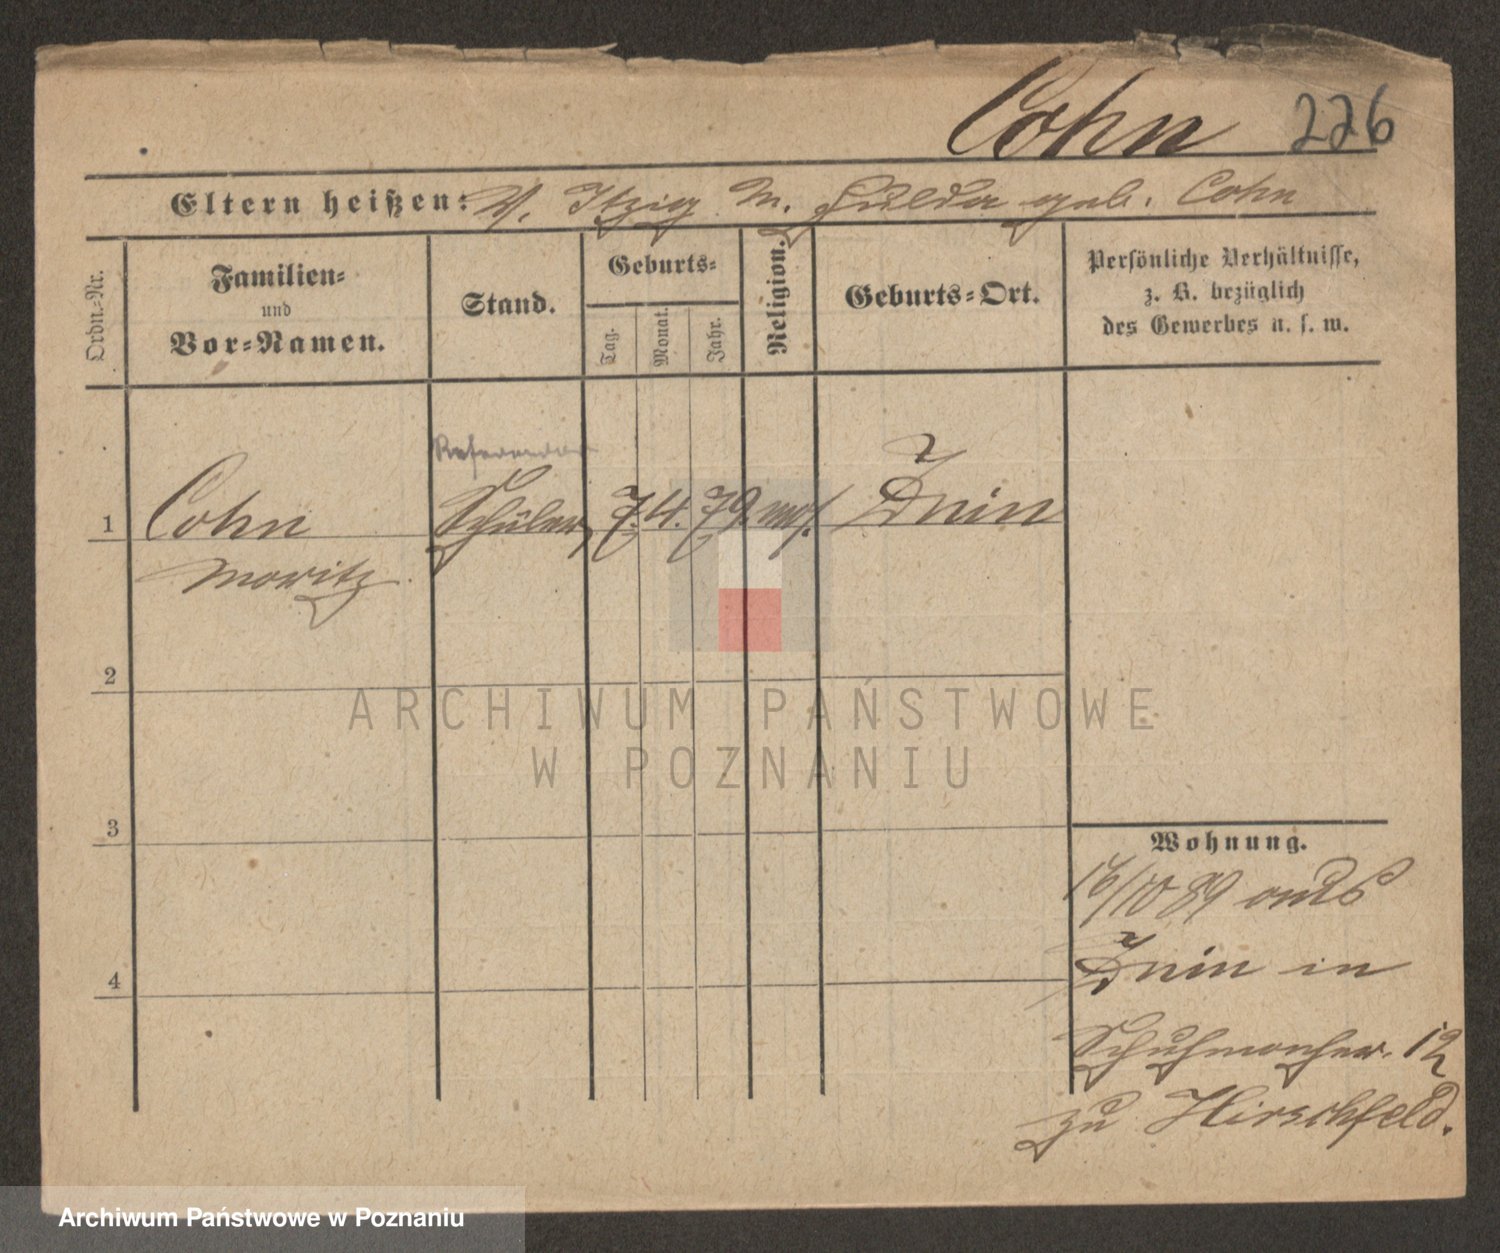 Cohn 226
Eltern heißen: V. Itzig M. Hulda geb. Cohn
Ordn.-Nr.
Familien-
und
Vor-Namen.
Stand.
Geburts-
Tag.
Monat.
Jahr.
Religion.
Geburts-Ort.
Persönliche Verhältnisse,
z. B. bezüglich
des Gewerbes u. s. w.
Referendar
1 Cohn Schüler 7. 4. 79. mos. Znin
Moritz
2
3
4
ARCHIWUM PAŃSTWOWE
W POZNANIU
Wohnung.
16/10 89 aus
Znin in
Schuhmacher. 12
zu Hirschfeld.
Archiwum Państwowe w Poznaniu